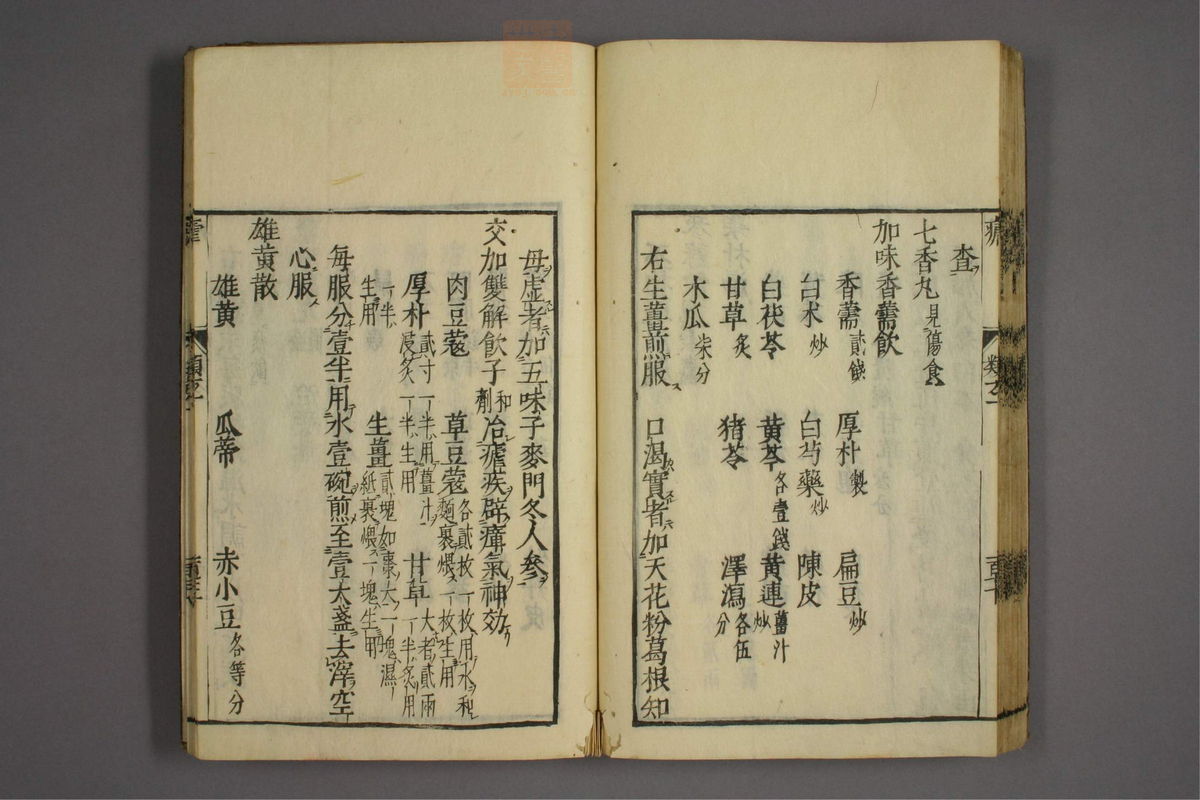 查
七香丸見傷食
加味香薷飲
香薷貳錢 厚朴製 扁豆炒
白朮炒 白芍藥炒 陳皮
白茯苓 黃芩各壹錢 黃連薑汁炒
甘草炙 猪苓 澤瀉各伍分
木瓜柒分
右生薑煎服 口渴實者加天花粉葛根知
母虛者加五味子麥門冬人參
交加雙解飲子和劑治瘧疾辟瘴氣神効
肉豆蔻 草豆蔻各貳枚一枚用水和麵裹煨一枚生用
厚朴貳寸一半用薑汁浸炙一半生用 甘草大者貳兩一半炙用
一半生用 生薑貳塊如棗大一塊濕紙裹煨一塊生用
每服分壹半用水壹碗煎至壹大盞去滓空
心服
雄黃散
雄黃 瓜蒂 赤小豆各等分
類玄一